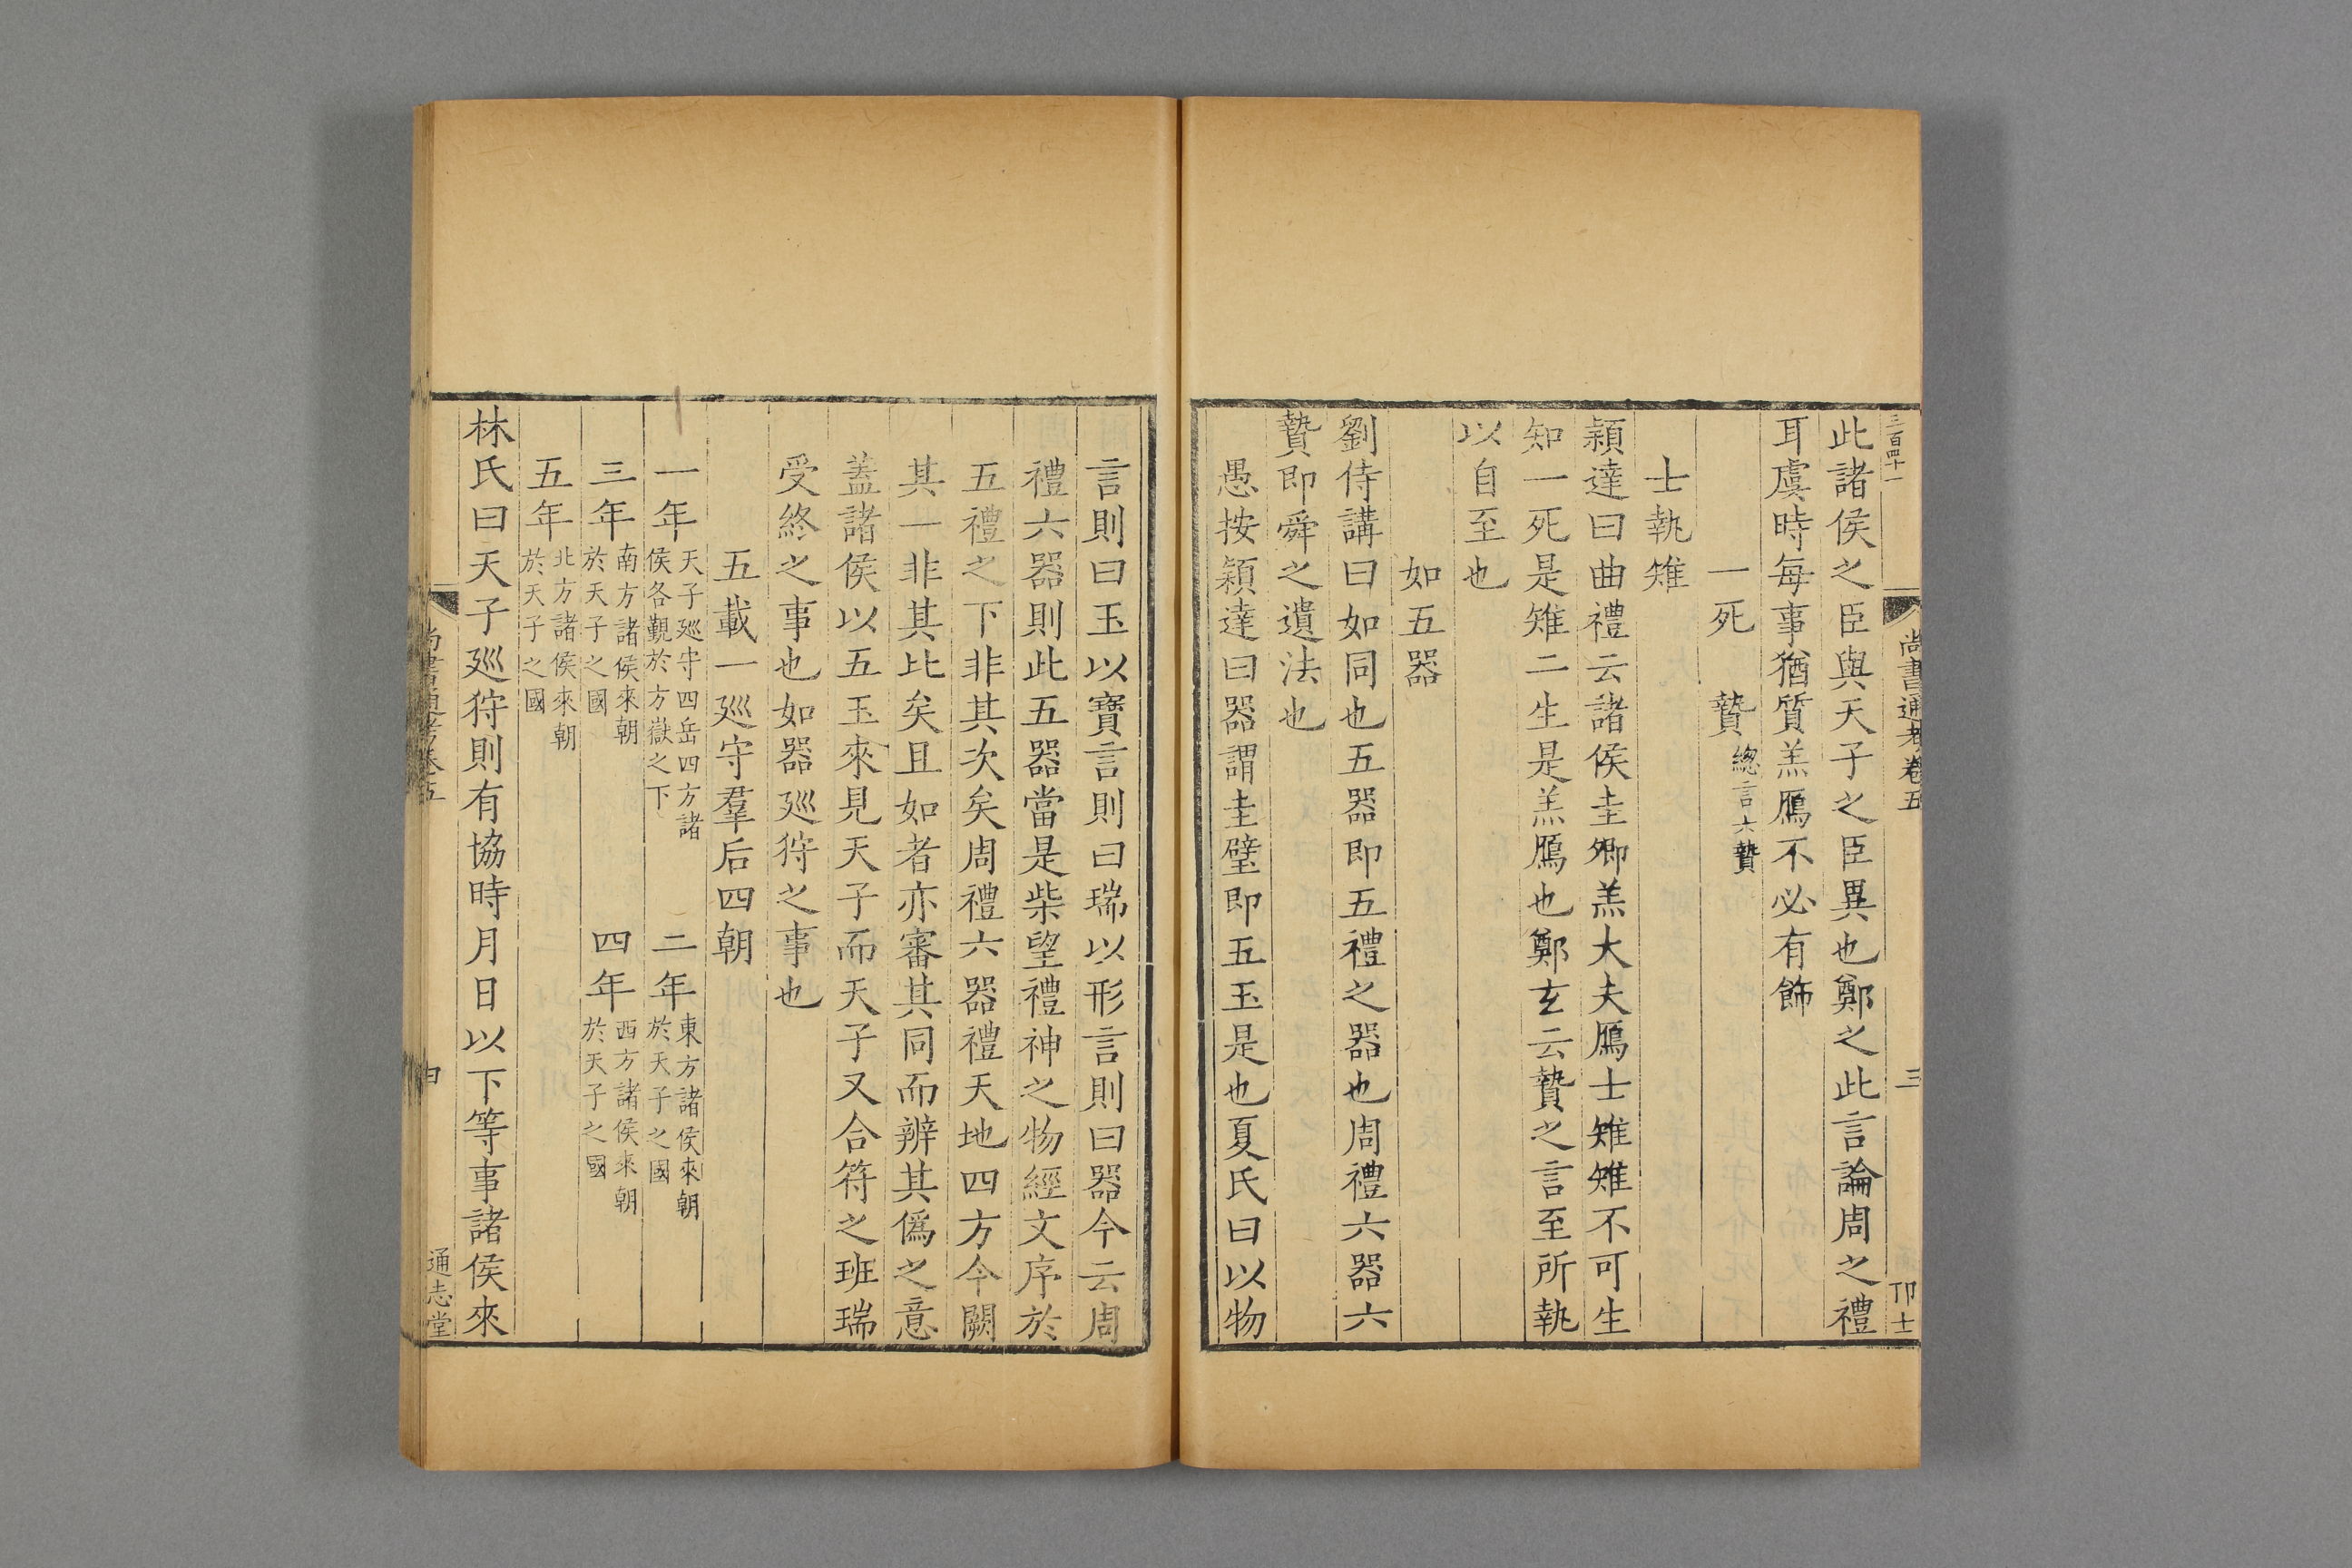 三百四十一
尚書通考卷五
三
卬士
此諸侯之臣與天子之臣異也鄭之此言論周之禮
耳虞時每事猶質羔鴈不必有飾
一死　贄總言六贄
士執雉
穎達曰曲禮云諸侯圭卿羔大夫鴈士雉雉不可生
知一死是雉二生是羔鴈也鄭玄云贄之言至所執
以自至也
如五器
劉侍講曰如同也五器即五禮之器也周禮六器六
贄即舜之遺法也
愚按穎達曰器謂圭璧即五玉是也夏氏曰以物
言則曰玉以寶言則曰瑞以形言則曰器今云周
禮六器則此五器當是柴望禮神之物經文序於
五禮之下非其次矣周禮六器禮天地四方今闕
其一非其比矣且如者亦審其同而辨其僞之意
蓋諸侯以五玉來見天子而天子又合符之班瑞
受終之事也如器廵狩之事也
五載一廵守羣后四朝
一年天子廵守四岳四方諸
侯各覲於方嶽之下
二年東方諸侯來朝
於天子之國
三年南方諸侯來朝
於天子之國
四年西方諸侯來朝
於天子之國
五年北方諸侯來朝
於天子之國
林氏曰天子廵狩則有協時月日以下等事諸侯來
尚書通考卷五
通志堂